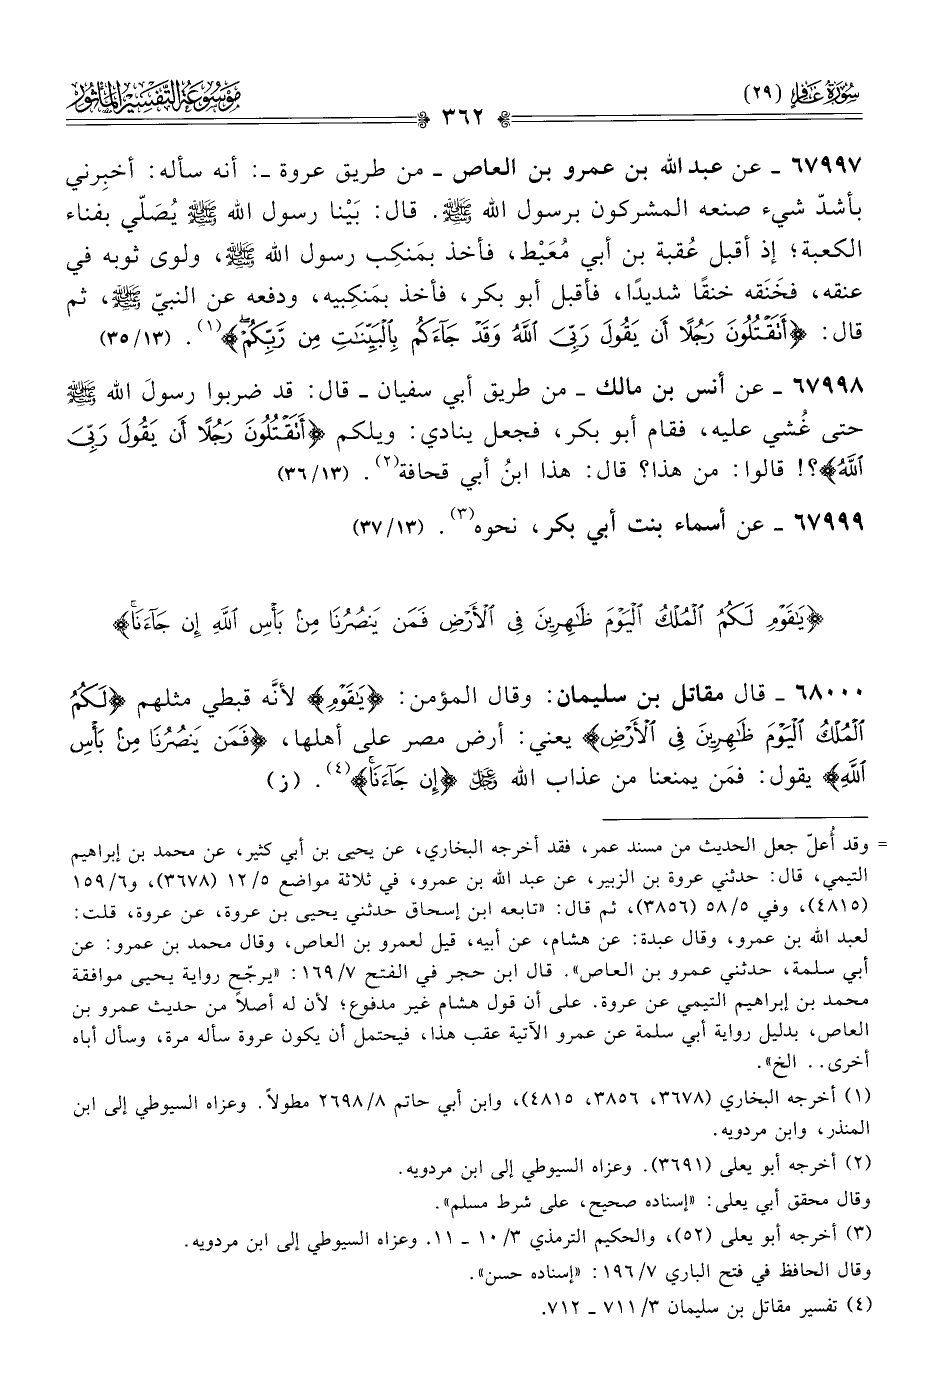 سورة غافر (٢٩)
موسوعة التفسير المأثور
٣٦٢
٦٧٩٩٧ ـ عن عبد الله بن عمرو بن العاص ـ من طريق عروة ـ: أنه سأله: أخبِرني
بأشدّ شيء صنعه المشركون برسول الله ﷺ. قال: بَيْنا رسول الله ﷺ يُصَلّي بفناء
الكعبة؛ إذ أقبل عُقبة بن أبي مُعَيْط، فأخذ بمَنكِب رسول الله ﷺ، ولوى ثوبه في
عنقه، فخَنَقه خنقًا شديدًا، فأقبل أبو بكر، فأخذ بمَنكِبيه، ودفعه عن النبيّ ﷺ، ثم
قال: ﴿أَتَقْتُلُونَ رَجُلًا أَن يَقُولَ رَبِّىَ ٱللَّهُ وَقَدْ جَآءَكُم بِٱلْبَيِّنَٰتِ مِن رَّبِّكُمْۖ﴾(١). (٣٥/١٣)
٦٧٩٩٨ ـ عن أنس بن مالك ـ من طريق أبي سفيان ـ قال: قد ضربوا رسولَ الله ﷺ
حتى غُشي عليه، فقام أبو بكر، فجعل ينادي: ويلكم ﴿أَتَقْتُلُونَ رَجُلًا أَن يَقُولَ رَبِّىَ
ٱللَّهُ﴾؟! قالوا: من هذا؟ قال: هذا ابنُ أبي قحافة(٢). (٣٦/١٣)
٦٧٩٩٩ ـ عن أسماء بنت أبي بكر، نحوه(٣). (٣٧/١٣)
﴿يَٰقَوْمِ لَكُمُ ٱلْمُلْكُ ٱلْيَوْمَ ظَٰهِرِينَ فِى ٱلْأَرْضِ فَمَن يَنصُرُنَا مِنۢ بَأْسِ ٱللَّهِ إِن جَآءَنَاۚ﴾
٦٨٠٠٠ ـ قال مقاتل بن سليمان: وقال المؤمن: ﴿يَٰقَوْمِ﴾ لأنَّه قبطي مثلهم ﴿لَكُمُ
ٱلْمُلْكُ ٱلْيَوْمَ ظَٰهِرِينَ فِى ٱلْأَرْضِ﴾ يعني: أرض مصر على أهلها، ﴿فَمَن يَنصُرُنَا مِنۢ بَأْسِ
ٱللَّهِ﴾ يقول: فمَن يمنعنا من عذاب الله عز وجل ﴿إِن جَآءَنَاۚ﴾(٤). (ز)
= وقد أُعلّ جعل الحديث من مسند عمر، فقد أخرجه البخاري، عن يحيى بن أبي كثير، عن محمد بن إبراهيم
التيمي، قال: حدثني عروة بن الزبير، عن عبد الله بن عمرو، في ثلاثة مواضع ١٢/٥ (٣٦٧٨)، و٦/ ١٥٩
(٤٨١٥)، وفي ٥٨/٥ (٣٨٥٦)، ثم قال: «تابعه ابن إسحاق حدثني يحيى بن عروة، عن عروة، قلت:
لعبد الله بن عمرو، وقال عبدة: عن هشام، عن أبيه، قيل لعمرو بن العاص، وقال محمد بن عمرو: عن
أبي سلمة، حدثني عمرو بن العاص». قال ابن حجر في الفتح ١٦٩/٧: «يرجّح رواية يحيى موافقة
محمد بن إبراهيم التيمي عن عروة. على أن قول هشام غير مدفوع؛ لأن له أصلاً من حديث عمرو بن
العاص، بدليل رواية أبي سلمة عن عمرو الآتية عقب هذا، فيحتمل أن يكون عروة سأله مرة، وسأل أباه
أخرى.. الخ».
(١) أخرجه البخاري (٣٦٧٨، ٣٨٥٦، ٤٨١٥)، وابن أبي حاتم ٢٦٩٨/٨ مطولاً. وعزاه السيوطي إلى ابن
المنذر، وابن مردويه.
(٢) أخرجه أبو يعلى (٣٦٩١). وعزاه السيوطي إلى ابن مردويه.
وقال محقق أبي يعلى: «إسناده صحيح، على شرط مسلم».
(٣) أخرجه أبو يعلى (٥٢)، والحكيم الترمذي ١٠/٣ ـ ١١. وعزاه السيوطي إلى ابن مردويه.
وقال الحافظ في فتح الباري ١٩٦/٧: «إسناده حسن».
(٤) تفسير مقاتل بن سليمان ٧١١/٣ ـ ٧١٢.